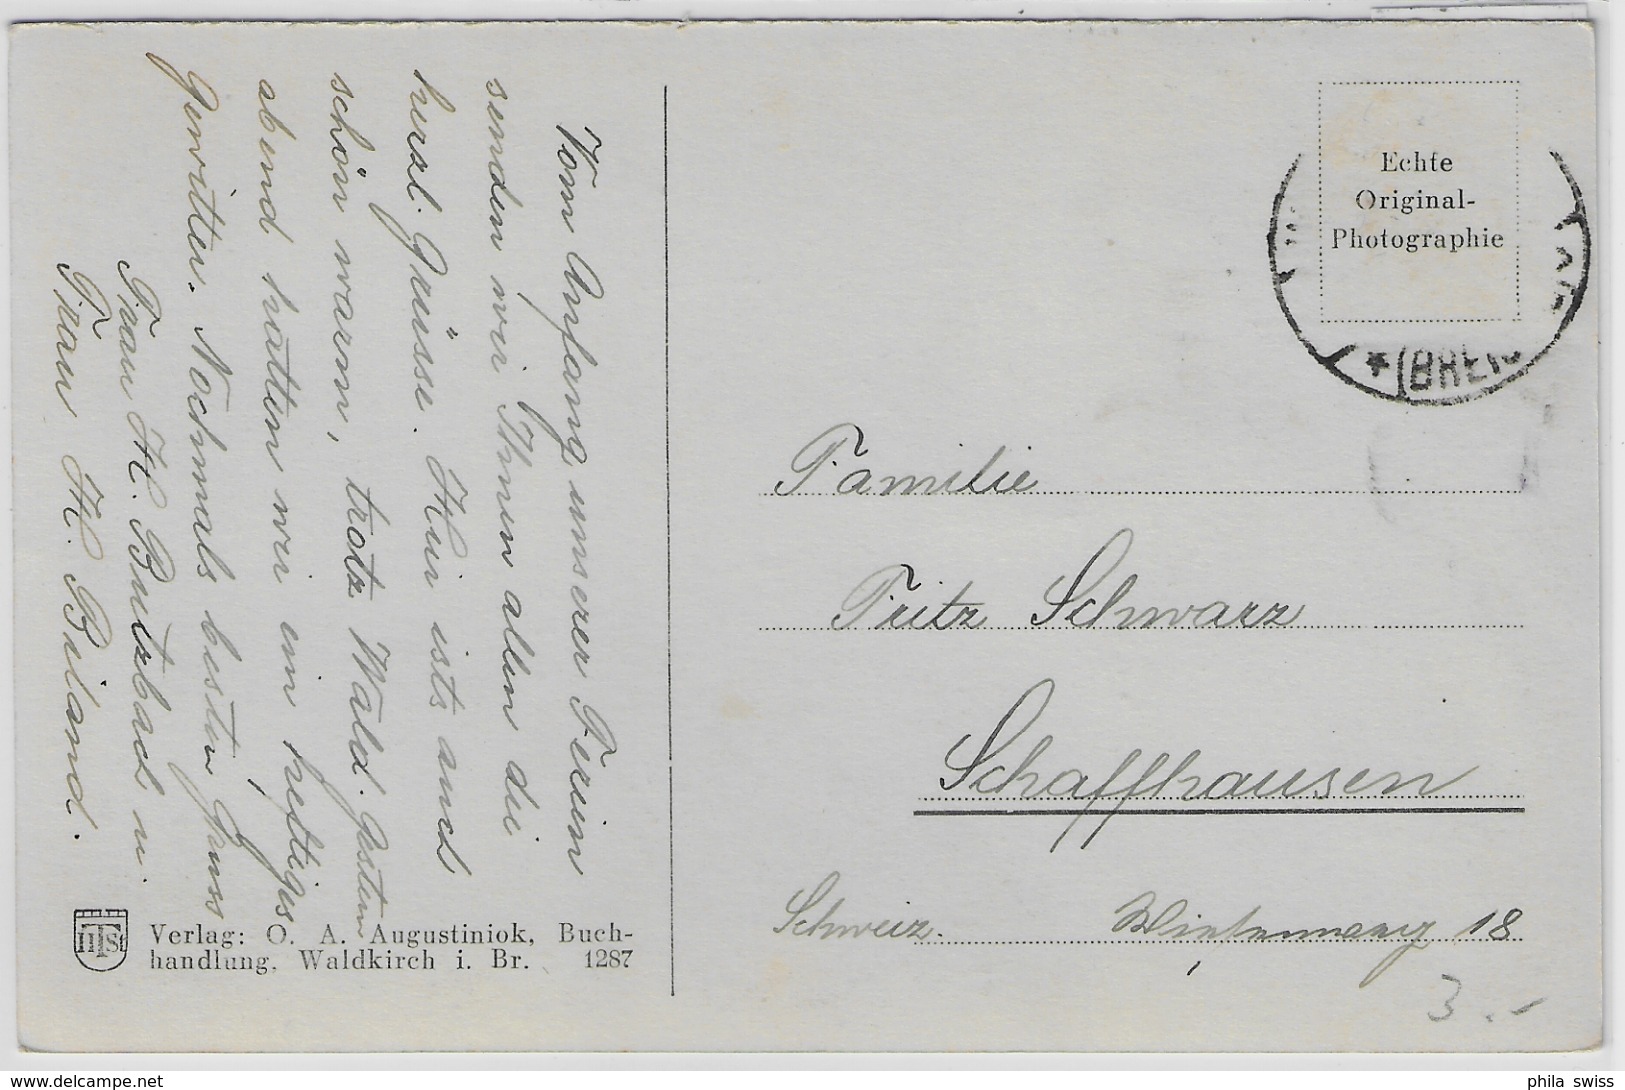 Vom Anfang unserer Ferien
senden wir Ihnen allen die
herzl. Grüsse. Hier ists auch
schön warm, trotz Wald. Gestern
abend hatten wir ein heftiges
Gewitter. Nochmals besten Gruss
Frau H. Butzbach u.
Frau H. Biland.
Verlag: O. A. Augustiniok, Buch-
handlung, Waldkirch i. Br. 1287
Echte
Original-
Photographie
*(BREIS
Familie
Fritz Schwarz
Schaffhausen
Schweiz. 18
3.-
phila swiss
www.delcampe.net